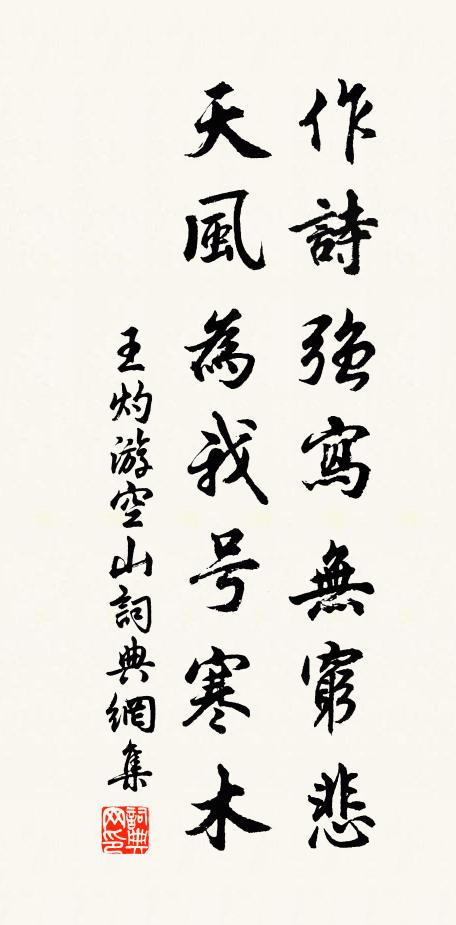 作詩強寫無窮悲
天風為我号寒木
王灼游空山詞典網集
詞典網印